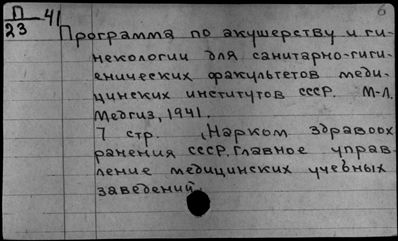 П/23 41
6
Программа по акушерству и ги-
некологии для санитарно-гиги-
енических факультетов меди-
цинских институтов СССР. М-Л.
Медгиз, 1941.
7 стр. Нарком здравоох
ранения СССР. Главное управ-
ление медицинских учебных
заведений.